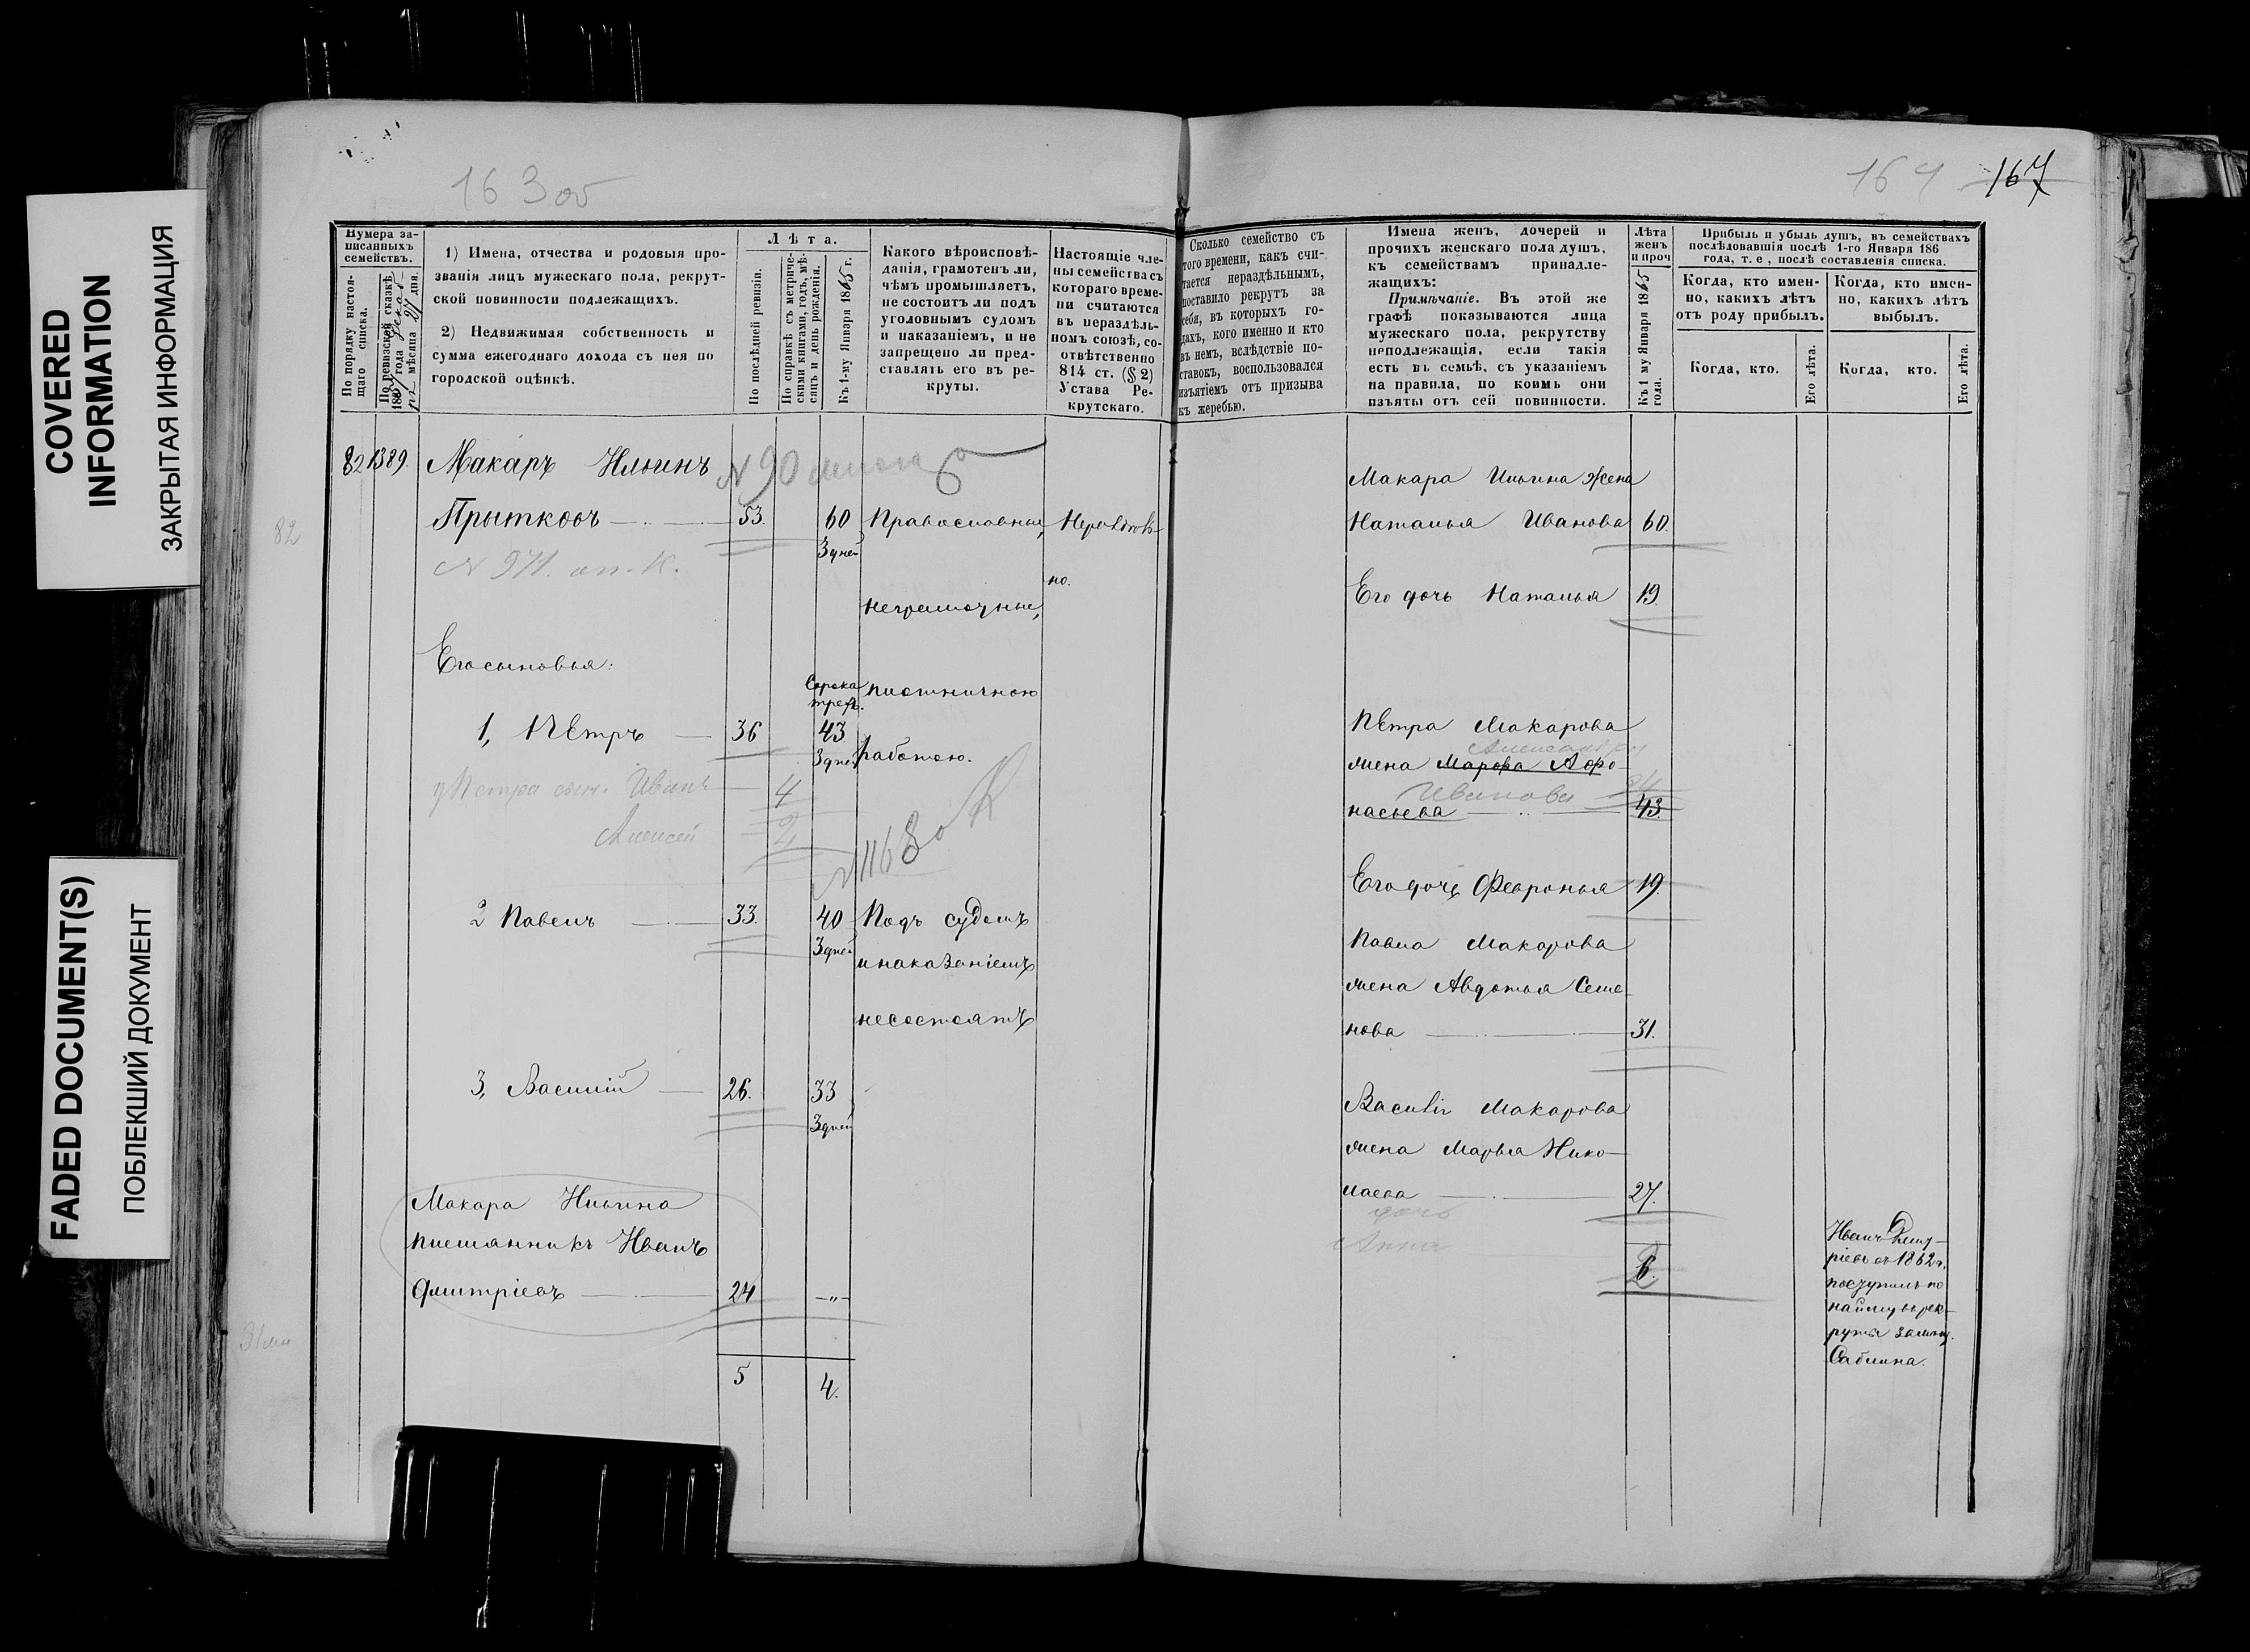 COVERED
INFORMATION
ЗАКРЫТАЯ ИНФОРМАЦИЯ
FADED DOCUMENT(S)
ПОБЛЕКШИЙ ДОКУМЕНТ
163 об
Нумера за-
писанныхъ
семействъ.
По порядку настоя-
щаго списка.
По ревизской сказкѣ
185 года
мѣсяца 27 дня.
1) Имена, отчества и родовыя про-
званія лицъ мужескаго пола, рекрут-
ской повинности подлежащихъ.
2) Недвижимая собственность и
сумма ежегоднаго дохода съ нея по
городской оцѣнкѣ.
Лѣта.
По послѣдней ревизіи.
По справкѣ съ метриче-
скими книгами, годъ, мѣ-
сяцъ и день рожденія.
Къ 1-му Января 1865 г.
Какого вѣроисповѣ-
данія, грамотенъ ли,
чѣмъ промышляетъ,
не состоитъ ли подъ
уголовнымъ судомъ
и наказаніемъ, и не
запрещено ли пред-
ставлять его въ ре-
круты.
Настоящіе чле-
ны семейства съ
котораго време-
ни считаются
въ нераздѣль-
номъ союзѣ, со-
отвѣтственно
814 ст. (§ 2)
Устава Ре-
крутскаго.
82 1389. Макаръ Ильинъ
N 90
Прытковъ 53. 60 Православные, Нераздѣль-
3 дней
N 971. оп. К.
82
но.
неграмотные,
Его сыновья:
Сорока
трехъ.
плотничною
1, Петръ 36 43
3 дней работою.
у Петра сын. Иванъ 4
Алексей 2
N 1168
2 Павелъ 33. 40 Подъ судомъ
3 дней
и наказаніемъ
несостоятъ
3, Василій 26. 33
3 дней
Макара Ильина
племянникъ Иванъ
Дмитріевъ 24 —"—
5 4.
164 167
Сколько семейство съ
того времени, какъ счи-
тается нераздѣльнымъ,
поставило рекрутъ за
себя, въ которыхъ го-
дахъ, кого именно и кто
въ немъ, вслѣдствіе по-
ставокъ, воспользовался
изъятіемъ отъ призыва
къ жеребью.
Имена женъ, дочерей и
прочихъ женскаго пола душъ,
къ семействамъ принадле-
жащихъ:
Примѣчаніе. Въ этой же
графѣ показываются лица
мужескаго пола, рекрутству
неподлежащія, если такія
есть въ семьѣ, съ указаніемъ
на правила, по коимъ они
изъяты отъ сей повинности.
Лѣта
женъ
и проч
Къ 1 му Января 1865
года.
Прибыль и убыль душъ, въ семействахъ
послѣдовавшія послѣ 1-го Января 186
года, т. е, послѣ составленія списка.
Когда, кто имен-
но, какихъ лѣтъ
отъ роду прибылъ.
Когда, кто имен-
но, какихъ лѣтъ
выбылъ.
Когда, кто.
Его лѣта.
Когда, кто.
Его лѣта.
Макара Ильина жена
Наталья Иванова 60.
Его дочь Наталья 19.
Петра Макарова
Александра
жена Марѳа Афо-
Иванова 34
насьева 43.
Его дочь Февронья 19.
Павла Макарова
жена Авдотья Семе-
нова 31.
Василія Макарова
жена Марья Нико-
лаева 27.
дочь
Анна
6.
Иванъ Дмит-
ріевъ въ 1862 г.
поступилъ по
найму въ рек-
руты за мѣщ.
Саблина.